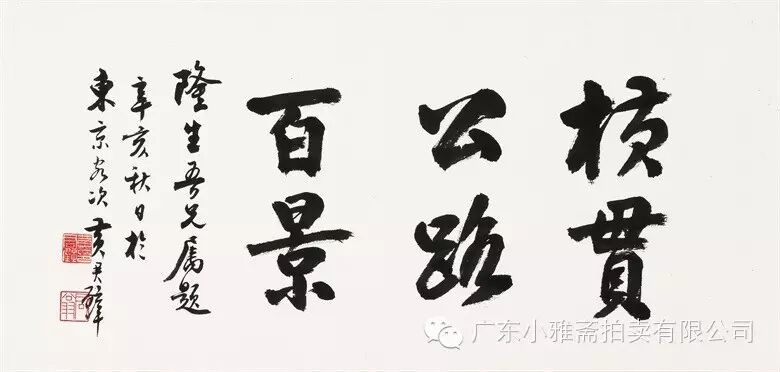 橫貫
公路
百景
隆生吾兄屬題
辛亥秋日於
東京客次黃君璧
广东小雅斋拍卖有限公司